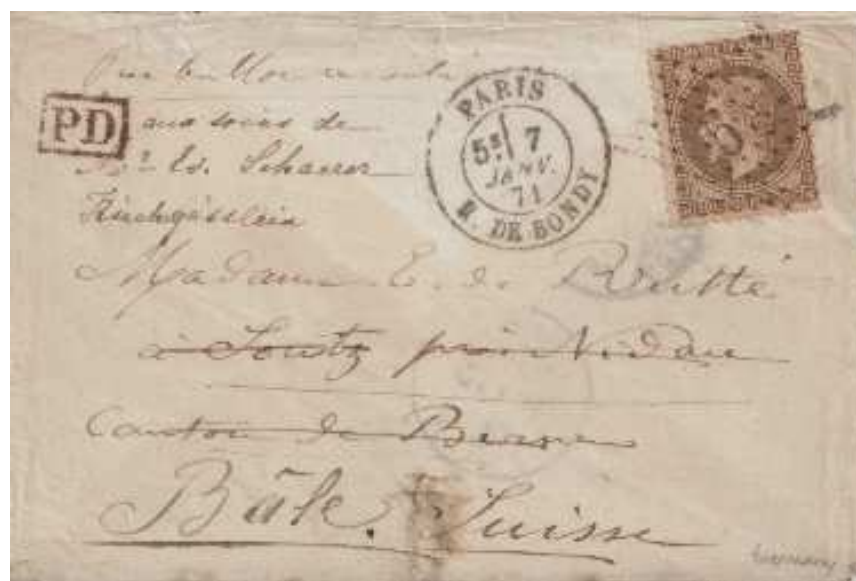 Par ballon monté
PD
aux soins de
Schaerer
Kirchgässlein
PARIS
5E 7
JANV.
71
R. DE BONDY
Madame E. de Rutté
à Soutz près Nidau
Canton de Berne
Bâle. Suisse